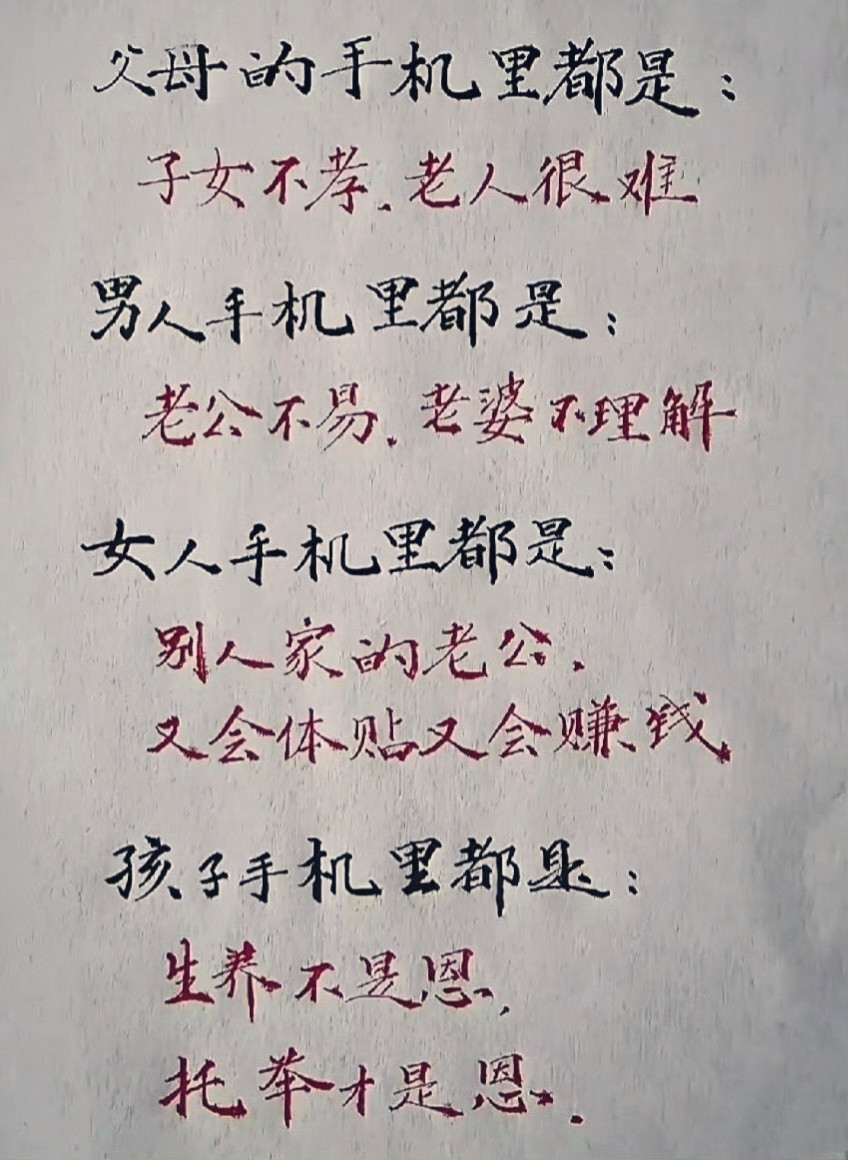 父母的手机里都是：
子女不孝.老人很难
男人手机里都是：
老公不易.老婆不理解
女人手机里都是：
别人家的老公.
又会体贴又会赚钱
孩子手机里都是：
生养不是恩,
托举才是恩.